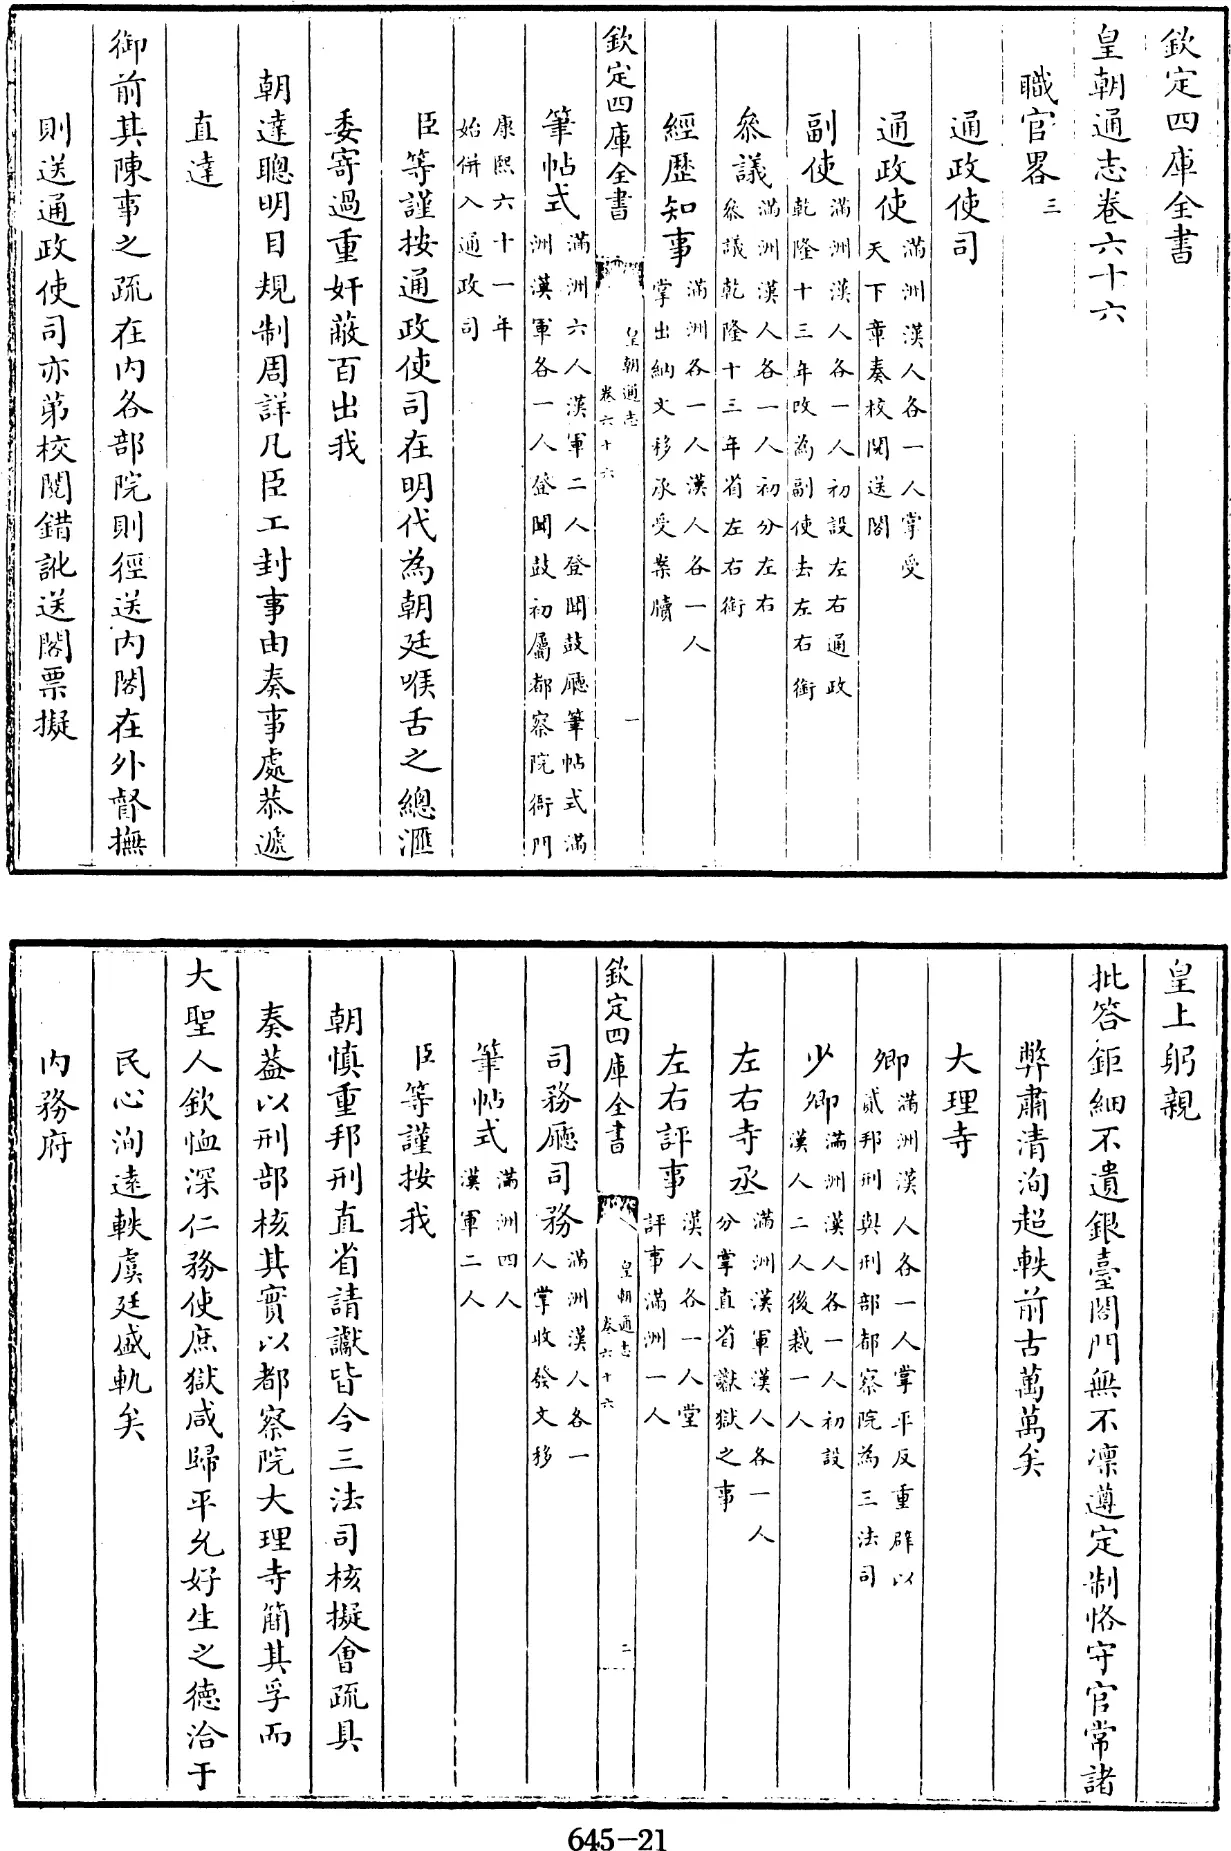 欽定四庫全書
皇朝通志卷六十六
職官畧三
通政使司
通政使滿洲漢人各一人掌受天下章奏校閱送閣
副使滿洲漢人各一人初設左右通政乾隆十三年改為副使去左右銜
參議滿洲漢人各一人初分左右參議乾隆十三年省左右銜
經歷知事滿洲各一人漢人各一人掌出納文移承受案牘
欽定四庫全書
皇朝通志
卷六十六
一
筆帖式滿洲六人漢軍二人登聞鼓廳筆帖式滿洲漢軍各一人登聞鼓初屬都察院衙門
康熙六十一年始併入通政司
臣等謹按通政使司在明代為朝廷喉舌之總滙
委寄過重奸蔽百出我
朝達聰明目規制周詳凡臣工封事由奏事處恭遞
直達
御前其陳事之疏在内各部院則徑送内閣在外督撫
則送通政使司亦第校閱錯訛送閣票擬
皇上躬親
批答鉅細不遺銀臺閤門無不凜遵定制恪守官常諸
弊肅清洵超軼前古萬萬矣
大理寺
卿滿洲漢人各一人掌平反重辟以貳邦刑與刑部都察院為三法司
少卿滿洲漢人各一人初設漢人二人後裁一人
左右寺丞滿洲漢軍漢人各一人分掌直省讞獄之事
左右評事漢人各一人堂評事滿洲一人
欽定四庫全書
皇朝通志
卷六十六
二
司務廳司務滿洲漢人各一人掌收發文移
筆帖式滿洲四人漢軍二人
臣等謹按我
朝慎重邦刑直省請讞皆令三法司核擬會疏具
奏葢以刑部核其實以都察院大理寺簡其孚而
大聖人欽恤深仁務使庶獄咸歸平允好生之德洽于
民心洵遠軼虞廷盛軌矣
内務府
645-21